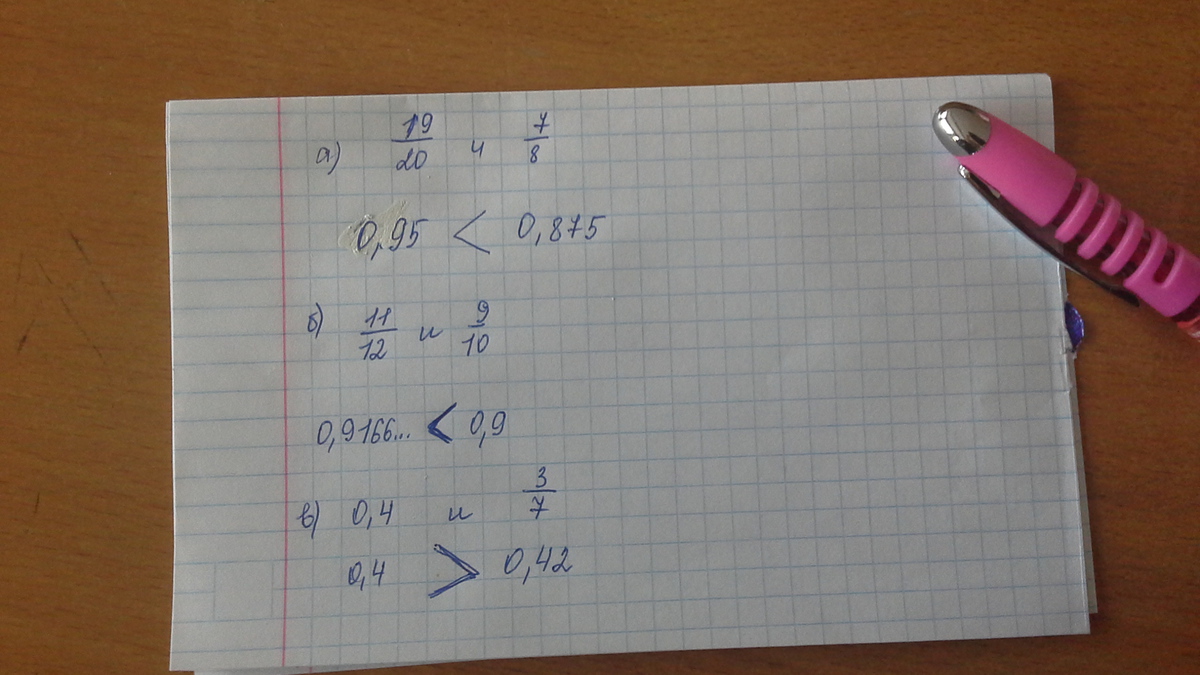 а) 19/20 и 7/8
0,95 < 0,875
б) 11/12 и 9/10
0,9166... < 0,9
в) 0,4 и 3/7
0,4 > 0,42